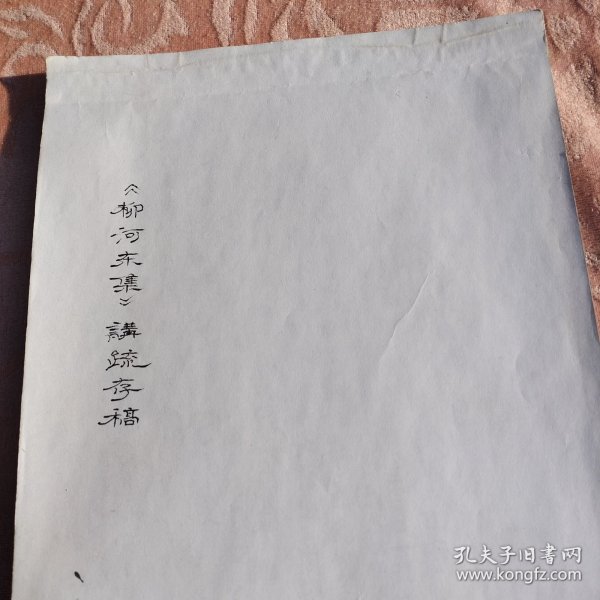 《柳河东集》講疏存稿
孔夫子旧书网
www.kongfz.com